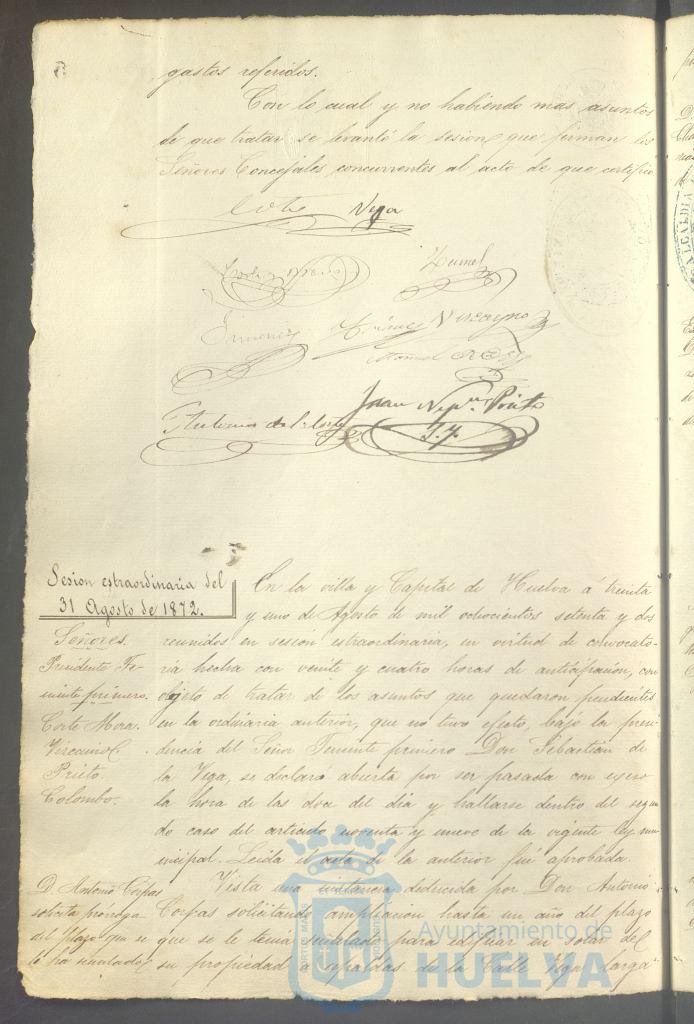 gastos referidos.
Con lo cual y no habiendo mas asuntos
de que tratar se levantó la sesion, que firman los
Señores Concejales concurrentes al acto de que certifico
Vega
Jimenez
Vizcayno
Juan Nep.no Prieto
Sesion estraordinaria del
31 Agosto de 1872.
En la villa y Capital de Huelva á treinta
y uno de Agosto de mil ochocientos setenta y dos
Señores.
Presidente Te-
niente primero.
Corte Mora.
Vizcaino
Prieto.
Colombo.
reunidos en sesion estraordinaria, en virtud de convocato-
ria hecha con veinte y cuatro horas de anticipacion, con
objeto de tratar de los asuntos que quedaron pendientes
en la ordinaria anterior, que no tuvo efecto, bajo la presi-
dencia del Señor Teniente primero Don Sebastian de
la Vega, se declaró abierta por ser pasada con exeso
la hora de las doce del dia y hallarse dentro del segun
do caso del articulo noventa y nueve de la vigente ley mu
nicipal. Leida el acta de la anterior fué aprobada.
D. Antonio Coipas
solicita prórroga
del plazo que se
le ha señalado
Vista una instancia deducida por Don Antonio
Coipas solicitando ampliacion hasta un año del plazo
que se le tenia señalado para edificar en solar de
su propiedad á espaldas de la Calle Vega Larga
Ayuntamiento de
HUELVA
ALCALDIA